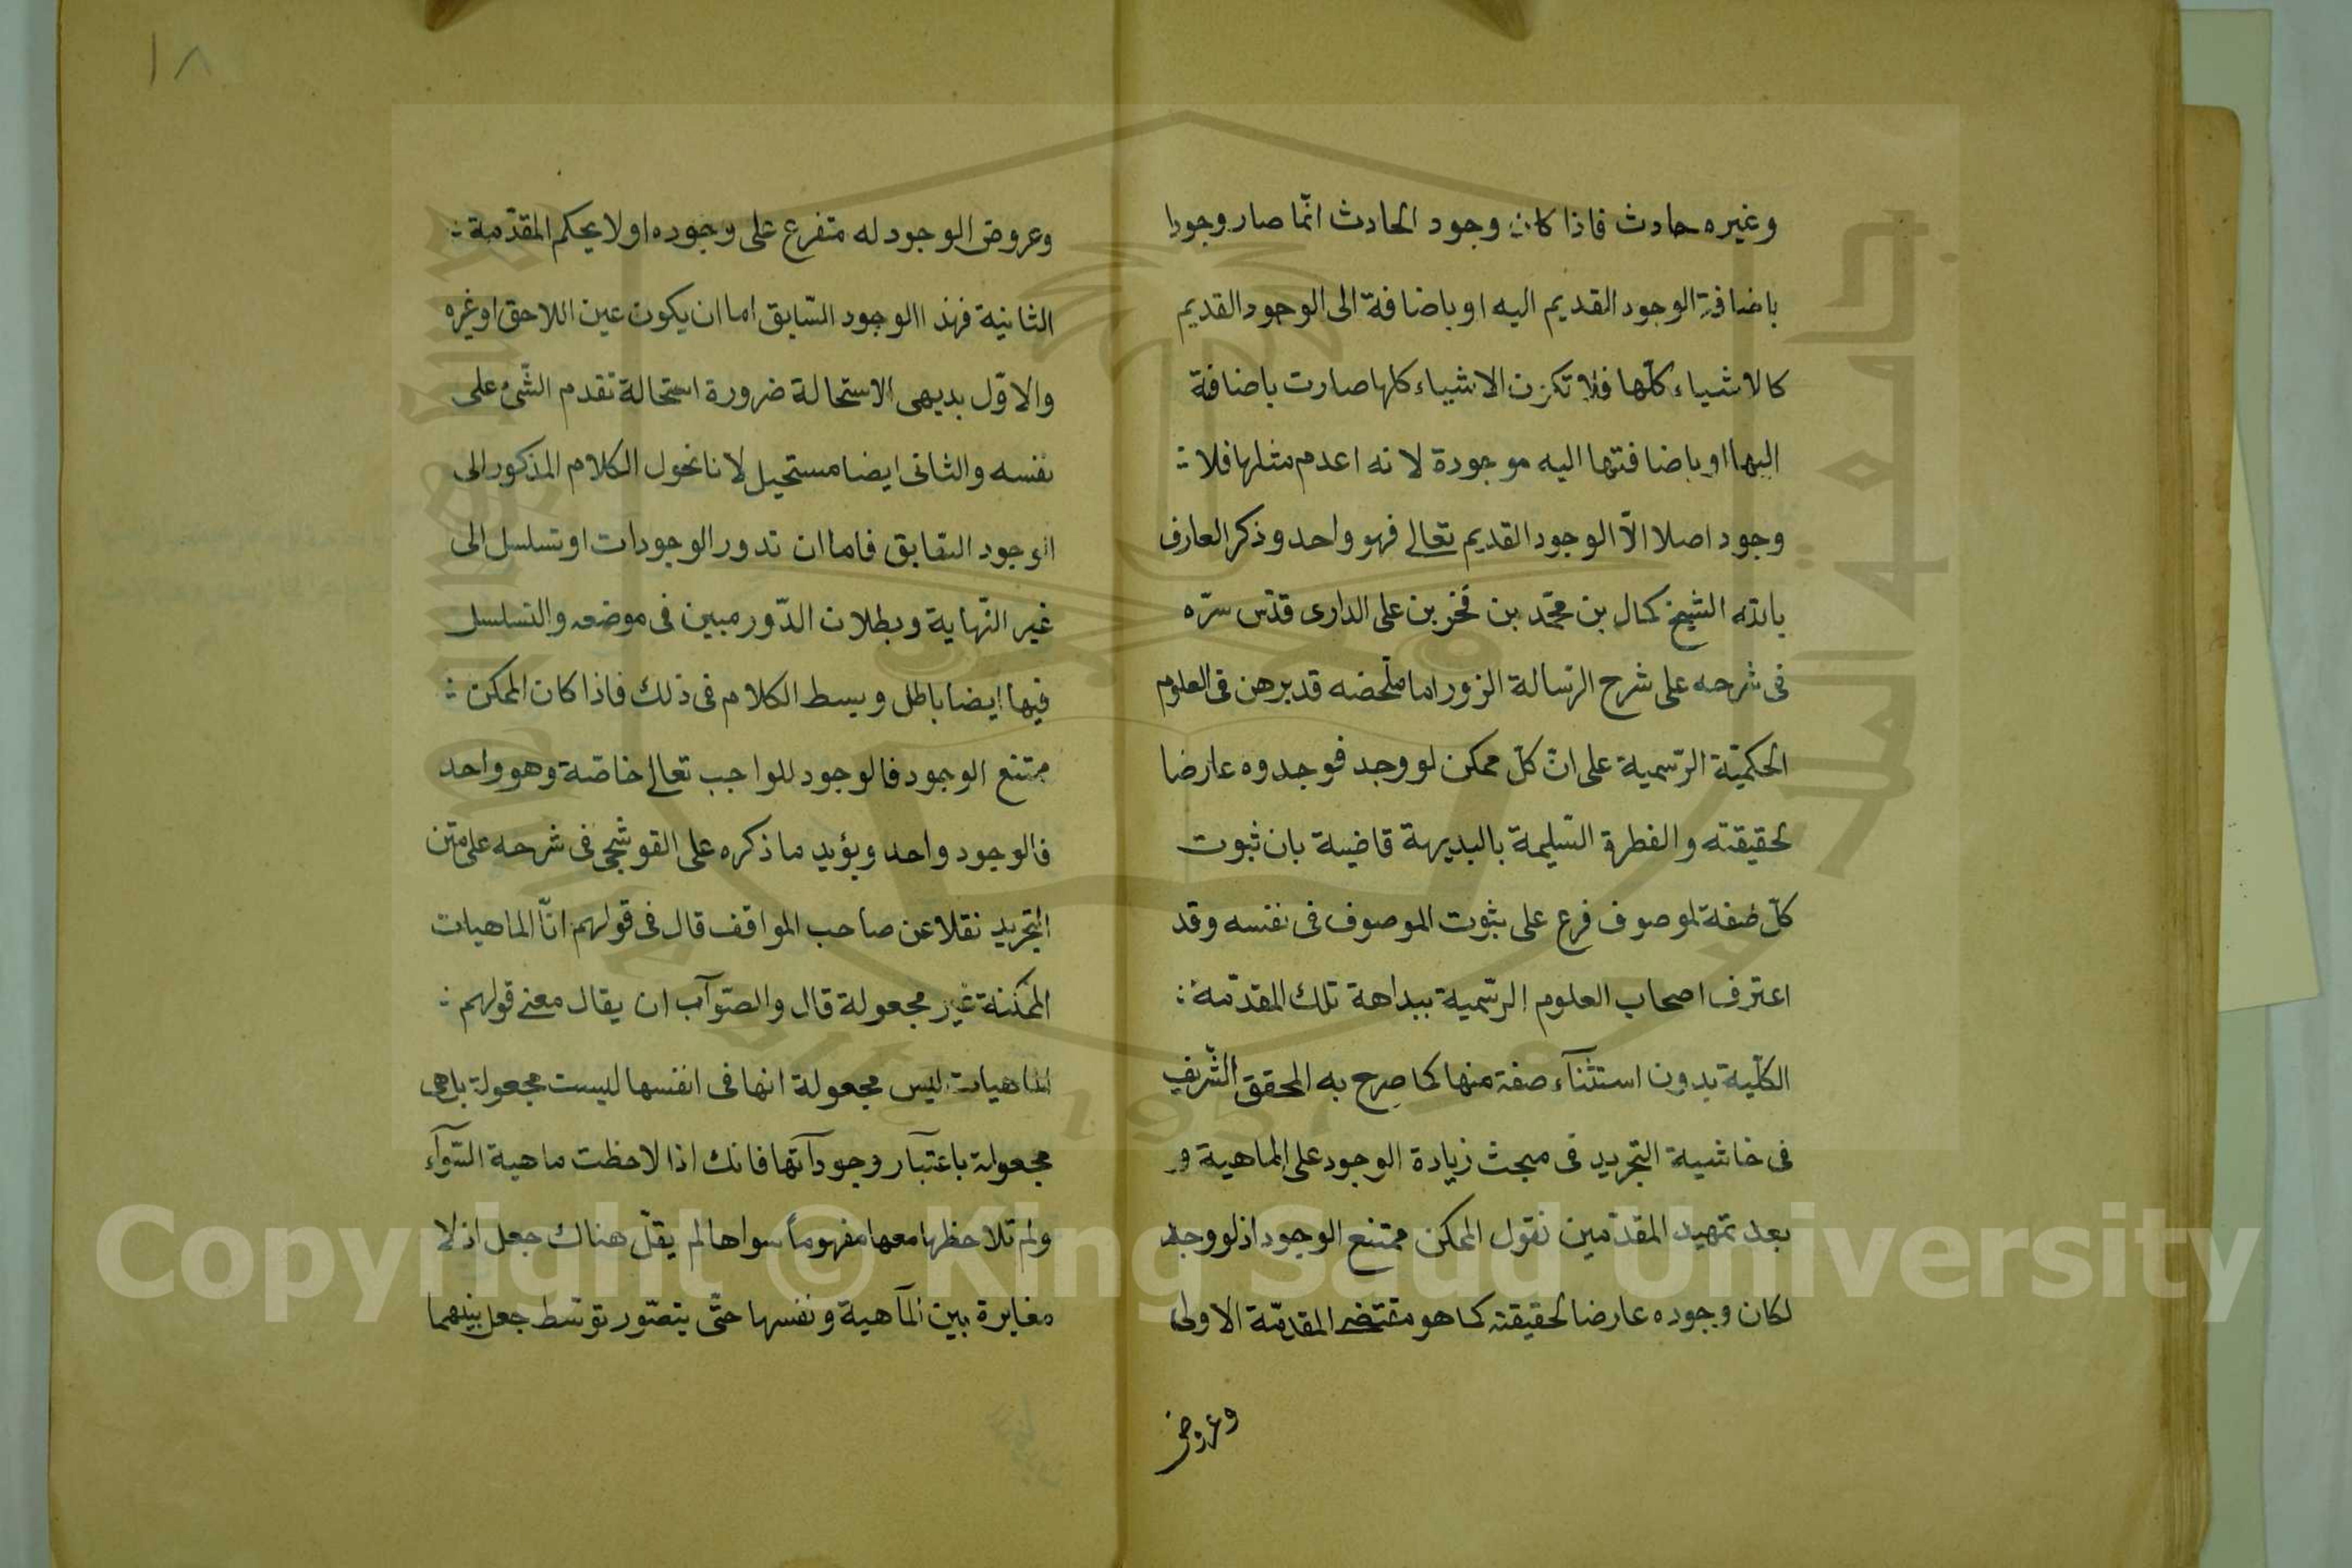 وغيره حادث فاذا كان وجود الحادث انّما صار وجودا
باضافة الوجود القديم اليه او باضافة الى الوجود القديم
كالاشياء كلّها فلا تكون الاشياء كلها صارت باضافة
اليها او باضافتها اليه موجودة لانه اعدم مثلها فلا :
وجود اصلا الّا الوجود القديم تعالى فهو واحد وذكر العارف
بالله الشيخ كمال بن محمّد بن فخر بن على الدارى قدّس سرّه
فى شرحه على شرح الرّسالة الزورا ما ملّخصه قد برهن فى العلوم
الحكميّة الرّسمية على انّ كلّ ممكن لو وجد فوجدوه عارضا
لحقيقته والفطرة السّليمة بالبديهة قاضية بان ثبوت
كلّ صفة لموصوف فرع على ثبوت الموصوف فى نفسه وقد
اعترف اصحاب العلوم الرّسمية ببداهة تلك المقدّمة :
الكلّية بدون استثنآء صفة منها كما صرح به المحقق الشّريف
فى حاشية التجريد فى مبحث زيادة الوجود على الماهية و
بعد تمهيد المقدّمين نقول الممكن ممتنع الوجود اذ لو وجد
لكان وجوده عارضا لحقيقته كما هو مقتضى المقدمّة الاولى
وعروض
١٨
وعروض الوجود له متفرع على وجوده اولا بحكم المقدّمة :
الثانية فهذا الوجود السّابق اما ان يكون عين اللاحق او غيره
والاوّل بديهى الاستحالة ضرورة استحالة تقدم الشّئ على
نفسه والثانى ايضا مستحيل لانا نحول الكلام المذكور الى
الوجود السّابق فاما ان تدور الوجودات او تسلسل الى
غير النّهاية وبطلان الدّور مبين فى موضعه والتسلسل
فيها ايضا باطل وبسط الكلام فى ذلك فاذا كان الممكن :
ممتنع الوجود فالوجود للواجب تعالى خاصّة وهو واحد
فالوجود واحد ويؤيد ما ذكره على القوشجى فى شرحه على متن
التجريد نقلا عن صاحب المواقف قال فى قولهم انّ الماهيات
الممكنة غير مجعولة قال والصّوآب ان يقال معنى قولهم :
الماهيات ليس مجعولة انها فى انفسها ليست مجعولة بل هى
مجعولة باعتبآر وجودآتها فانك اذا لاحظت ماهية السّوآء
ولم تلاحظها معها مفهوماً سواها لم يقلّ هناك جعل اذ لا
مغايرة بين المآهية ونفسها حتّى يتصّور توسّط جعل بينهما
Copyright © King Saud University